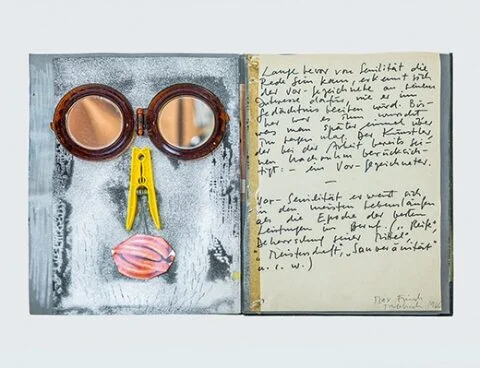 Lange bevor von Senilität die
Rede sein kann, erkennt sich
der Vor-Gezeichnete an seinem
Interesse dafür, wie er im
Gedächtnis bleiben wird. Bis-
her war es ihm wurscht
was man später einmal über
ihn sagen wird. Der Künstler,
der bei der Arbeit bereits sei-
nen Nachruhm berücksich-
tigt: – ein Vor-Gezeichneter.
—
Vor-Senilität erweist sich
in den meisten Lebensläufen
als die Epoche der besten
Leistungen im Beruf. („Reife",
Beherrschung seiner Mittel",
„Meisterschaft", „Souveränität"
u. s. w.)
Max Frisch